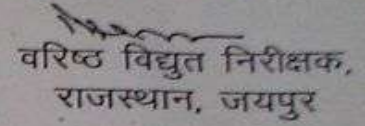 वरिष्ठ विद्युत निरीक्षक,
राजस्थान, जयपुर